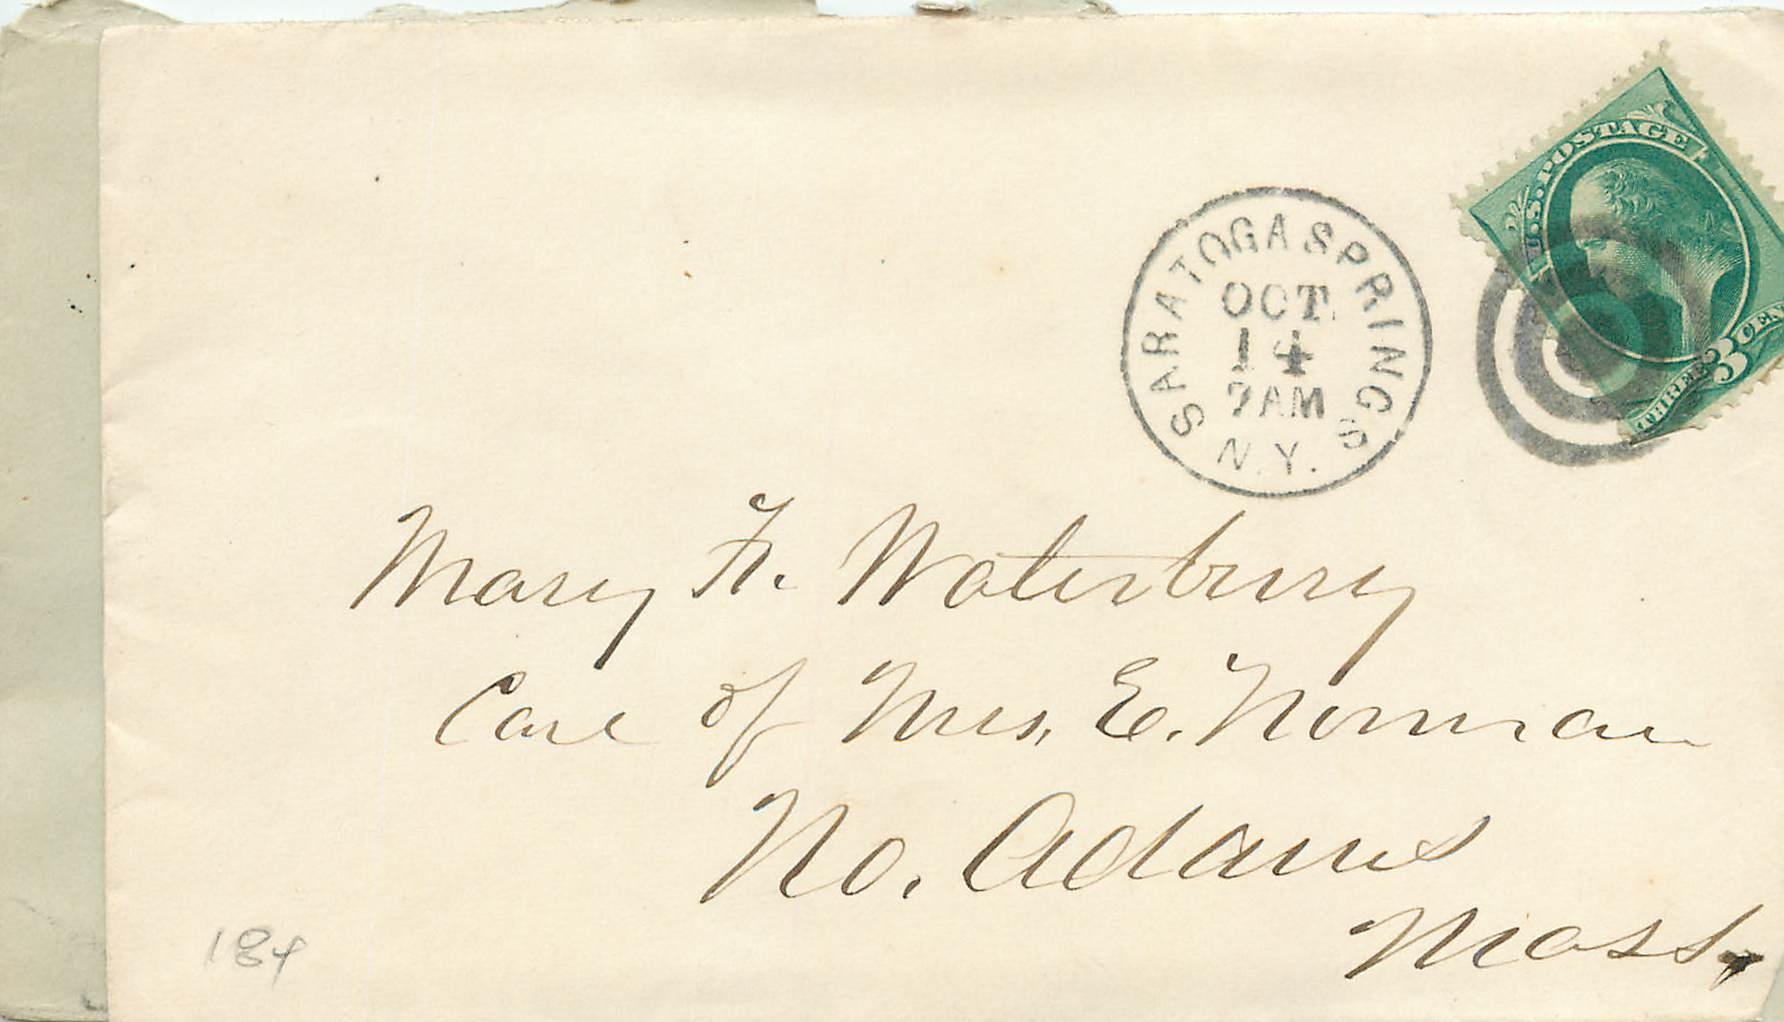 U.S. POSTAGE
THREE 3 CEN
SARATOGA SPRINGS
OCT.
14
7AM
N.Y.
Mary F. Waterbury
Care of Mrs. E. Norman
No. Adams
Mass.
184